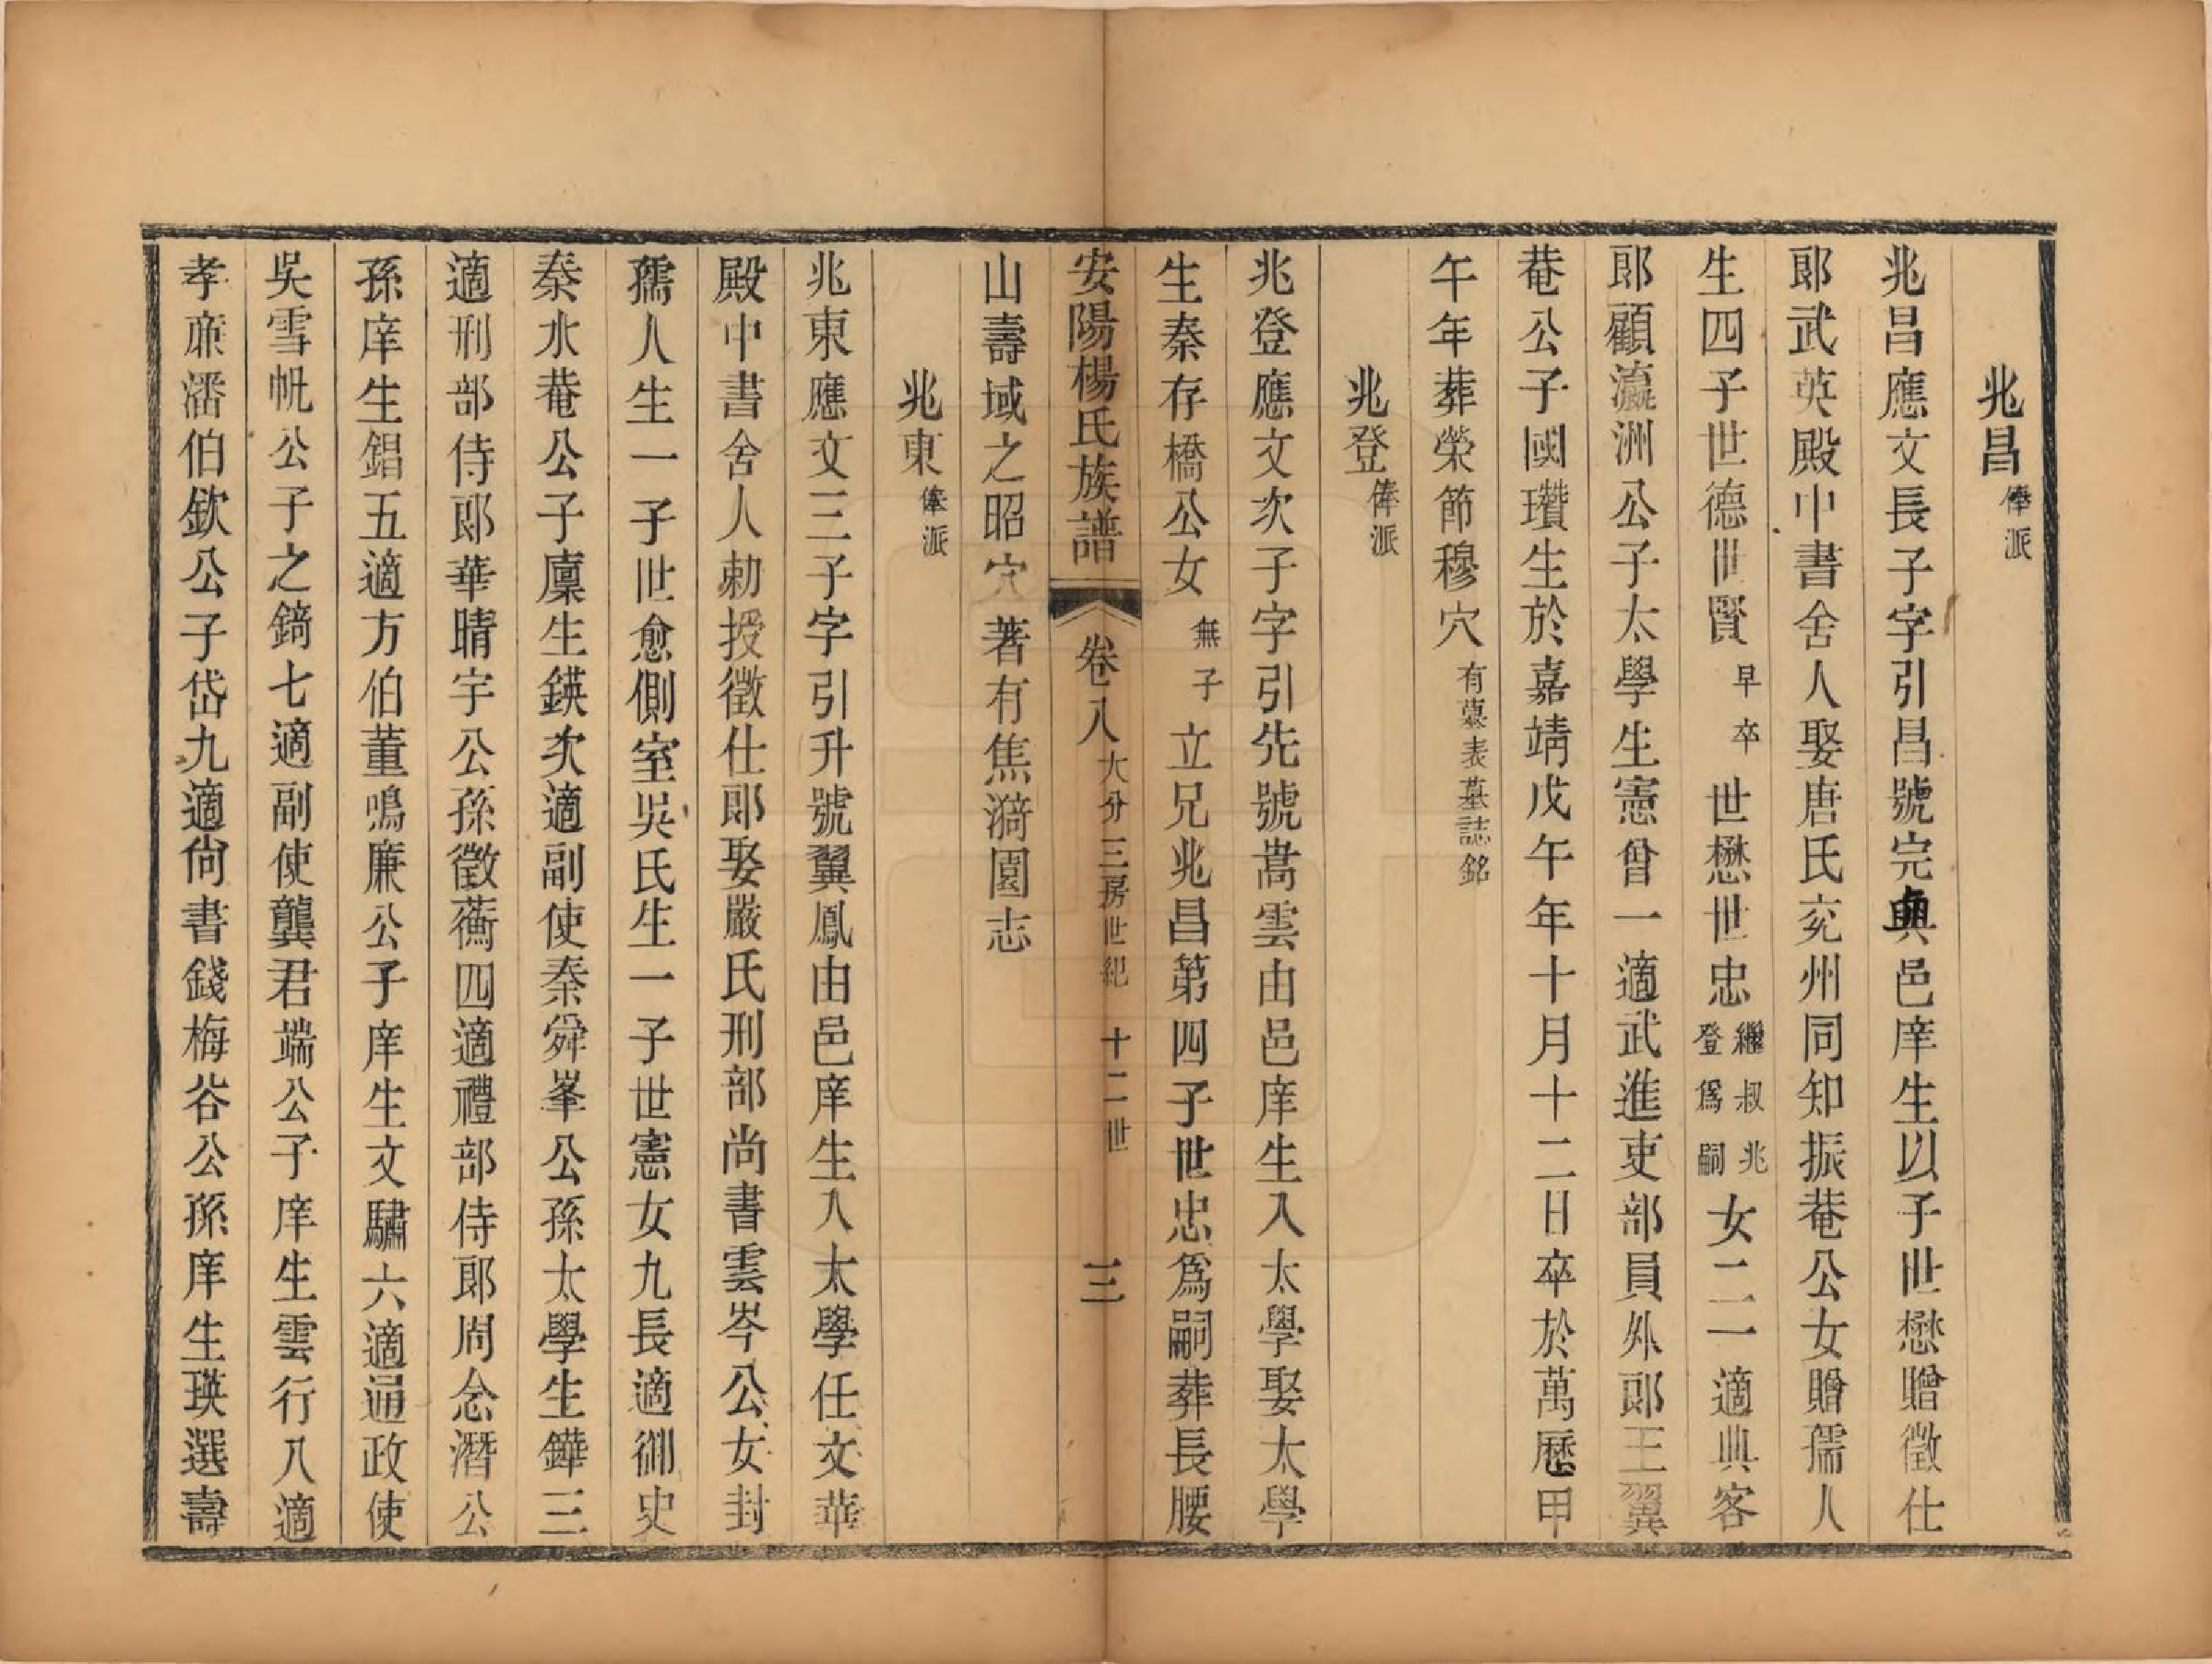 兆昌俸派
兆昌應文長子字引昌號完輿邑庠生以子世懋贈徵仕
郎武英殿中書舍人娶唐氏兖州同知振菴公女贈孺人
生四子世德世賢早卒世懋世忠繼叔兆登爲嗣女二一適典客
郎顧瀛洲公子太學生憲曾一適武進吏部員外郎王翼
菴公子國瓚生於嘉靖戊午年十月十二日卒於萬歷甲
午年葬榮節穆穴有墓表墓誌銘
兆登俸派
兆登應文次子字引先號嵩雲由邑庠生入太學娶太學
生秦存橋公女無子立兄兆昌第四子世忠爲嗣葬長腰
安陽楊氏族譜 卷八大分三房世紀 十二世 三
山壽域之昭穴著有焦漪園志
兆東俸派
兆東應文三子字引升號翼鳳由邑庠生入太學任文華
殿中書舍人勅授徵仕郎娶嚴氏刑部尚書雲岑公女封
孺人生一子世愈側室吳氏生一子世憲女九長適御史
秦水菴公子廩生鍈次適副使秦舜峯公孫太學生鏵三
適刑部侍郎華晴宇公孫徵蘅四適禮部侍郎周念潛公
孫庠生錩五適方伯董鳴廉公子庠生文驌六適通政使
吳雪帆公子之錡七適副使龔君端公子庠生雲行八適
孝亷潘伯欽公子岱九適尙書錢梅谷公孫庠生瑛選壽